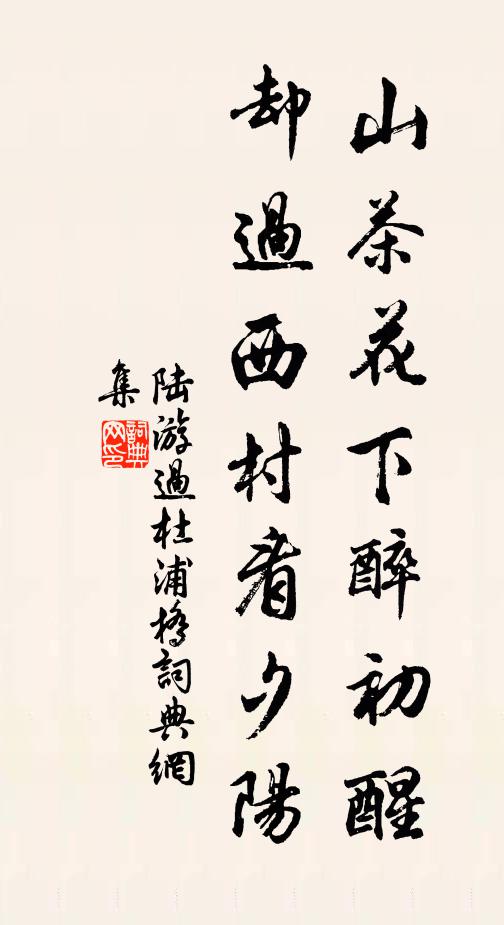 山茶花下醉初醒
却過西村看夕陽
陸游過杜浦橋詞典網
集
詞典
网印